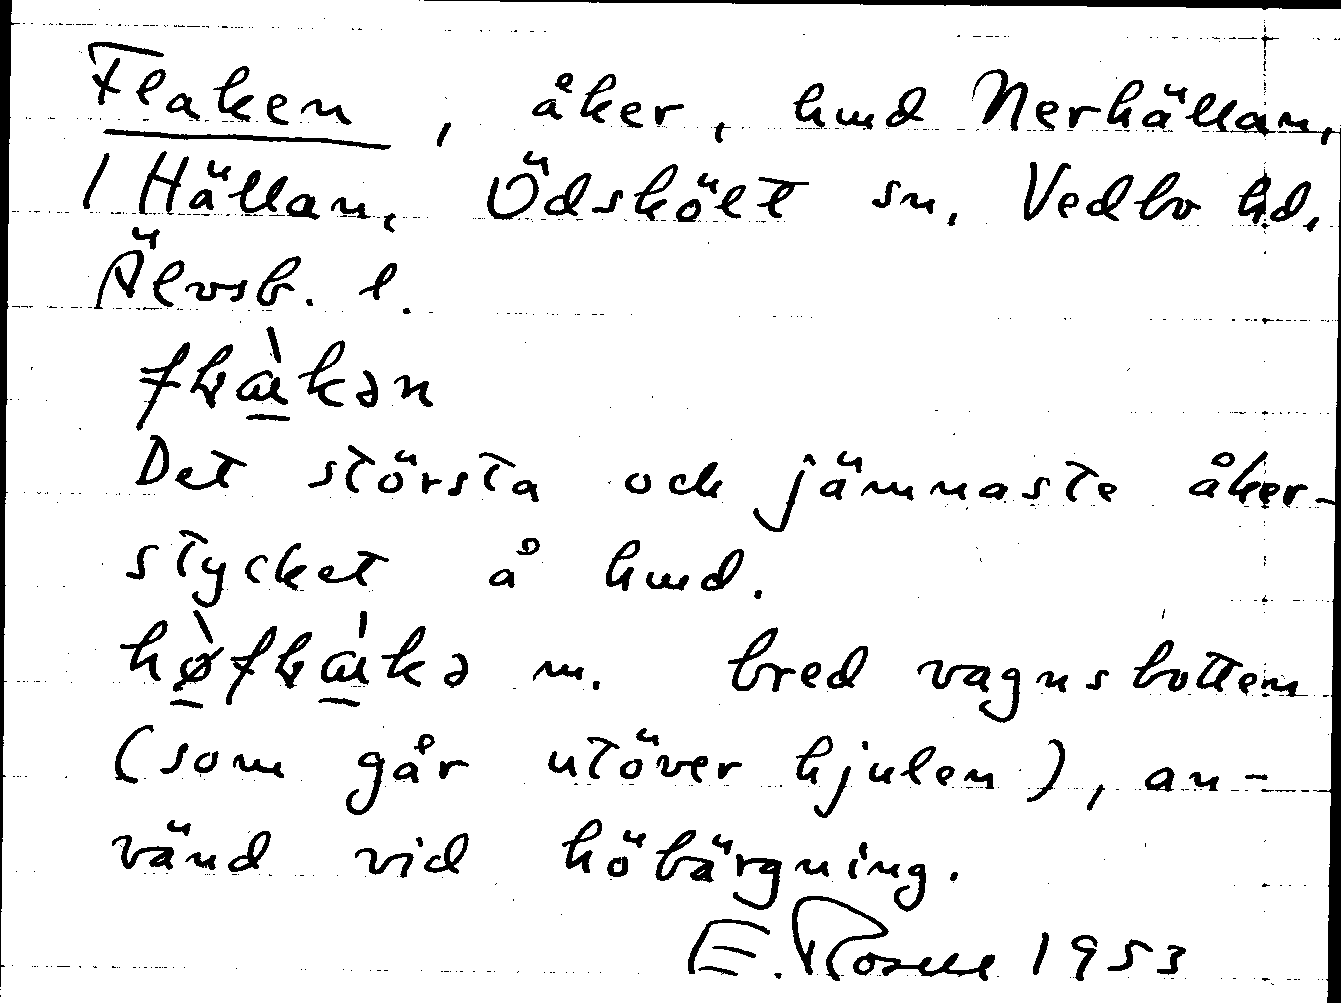 Flaken, åker, hmd Nerhällan,
1 Hällan, Ödskölt sn, Vedbo hd,
Älvsb. l.
Det största och jämnaste åker-
stycket å hmd.
m. bred vagnsbotten
(som går utöver hjulen), an-
vänd vid höbärgning.
E. Rosell 1953